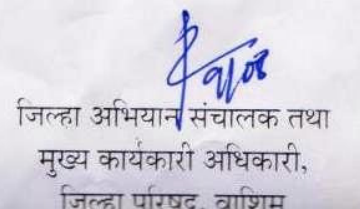 जिल्हा अभियान संचालक तथा
मुख्य कार्यकारी अधिकारी,
जिल्हा परिषद, वाशिम